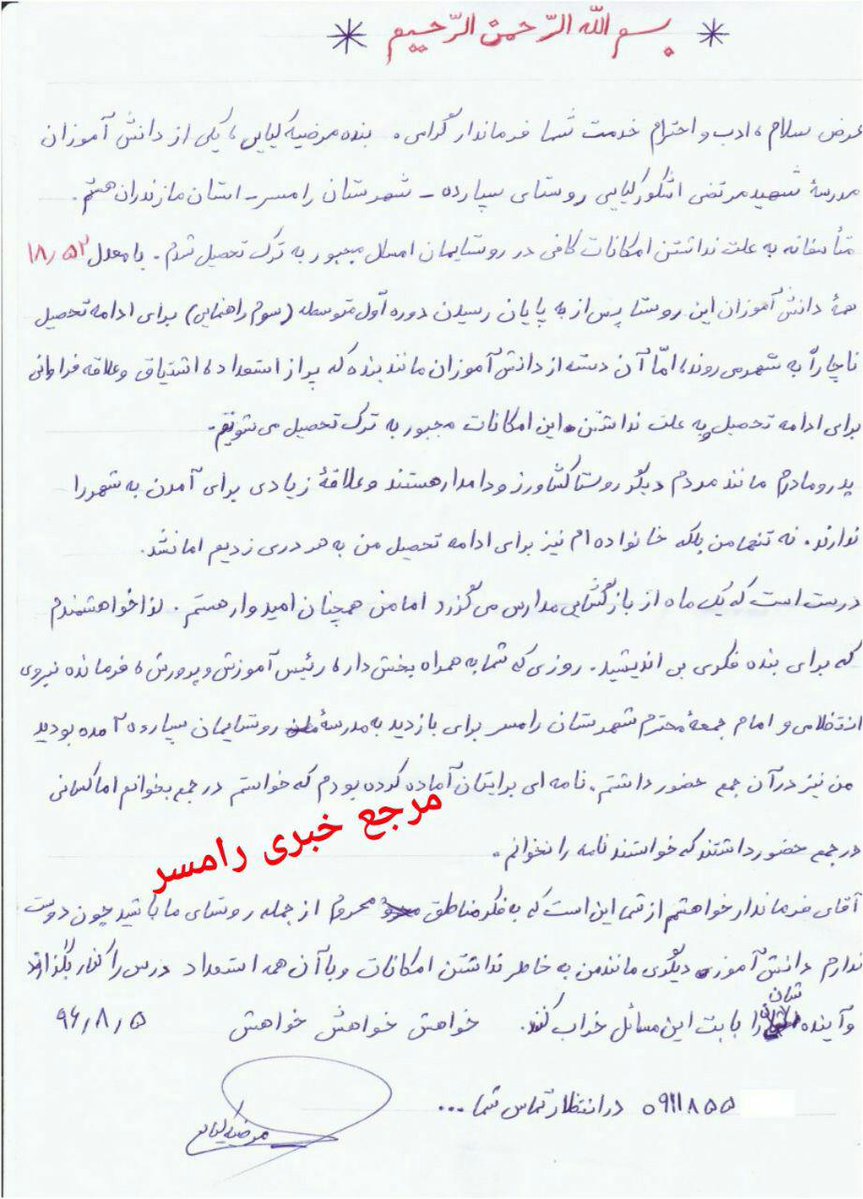 * بسم الله الرّحمن الرّحیم *
عرض سلام، ادب و احترام خدمت شما فرماندار گرامی. بنده مرضیه کیایی، یکی از دانش آموزان
مدرسهٔ شهید مرتضی اشکورکیایی روستای سپارده – شهرستان رامسر – استان مازندران هستم.
متأسفانه به علت نداشتن امکانات کافی در روستایمان امسال مجبور به ترک تحصیل شدم. با معدل ۱۸٫۵۲
همهٔ دانش آموزان این روستا پس از به پایان رسیدن دوره اول متوسطه (سوم راهنمایی) برای ادامه تحصیل
ناچاراً به شهر می روند، امّا آن دسته از دانش آموزان مانند بنده که پر از استعداد، اشتیاق و علاقه فراوانی
برای ادامه تحصیل به علت نداشتن این امکانات مجبور به ترک تحصیل می شویم.
پدر و مادرم مانند مردم دیگر روستا کشاورز و دامدار هستند و علاقهٔ زیادی برای آمدن به شهر را
ندارند. نه تنها من بلکه خانواده ام نیز برای ادامه تحصیل من به هر دری زدیم اما نشد.
درست است که یک ماه از بازگشایی مدارس می گزرد اما من همچنان امیدوار هستم. لذا خواهشمندم
که برای بنده فکری بی اندیشید. روزی که شما به همراه بخش دار، رئیس آموزش و پرورش، فرمانده نیروی
انتظامی و امام جمعهٔ محترم شهرستان رامسر برای بازدید به مدرسهٔ روستایمان سپارده آمده بودید
من نیز در آن جمع حضور داشتم. نامه ای برایتان آماده کرده بودم که خواستم در جمع بخوانم اما کسانی
در جمع حضور داشتند که خواستند نامه را نخوانم.
مرجع خبری رامسر
آقای فرماندار خواهشم از شما این است که به فکر مناطق محروم از جمله روستای ما باشید چون دوست
ندارم دانش آموز دیگری مانند من به خاطر نداشتن امکانات و با آن همه استعداد درس را کنار بگذارند
و آینده شان را بابت این مسائل خراب کنند. خواهش خواهش خواهش ۹۶٫۸٫۵
۰۹۱۱۸۵۵ در انتظار تماس شما ...
مرضیه کیایی